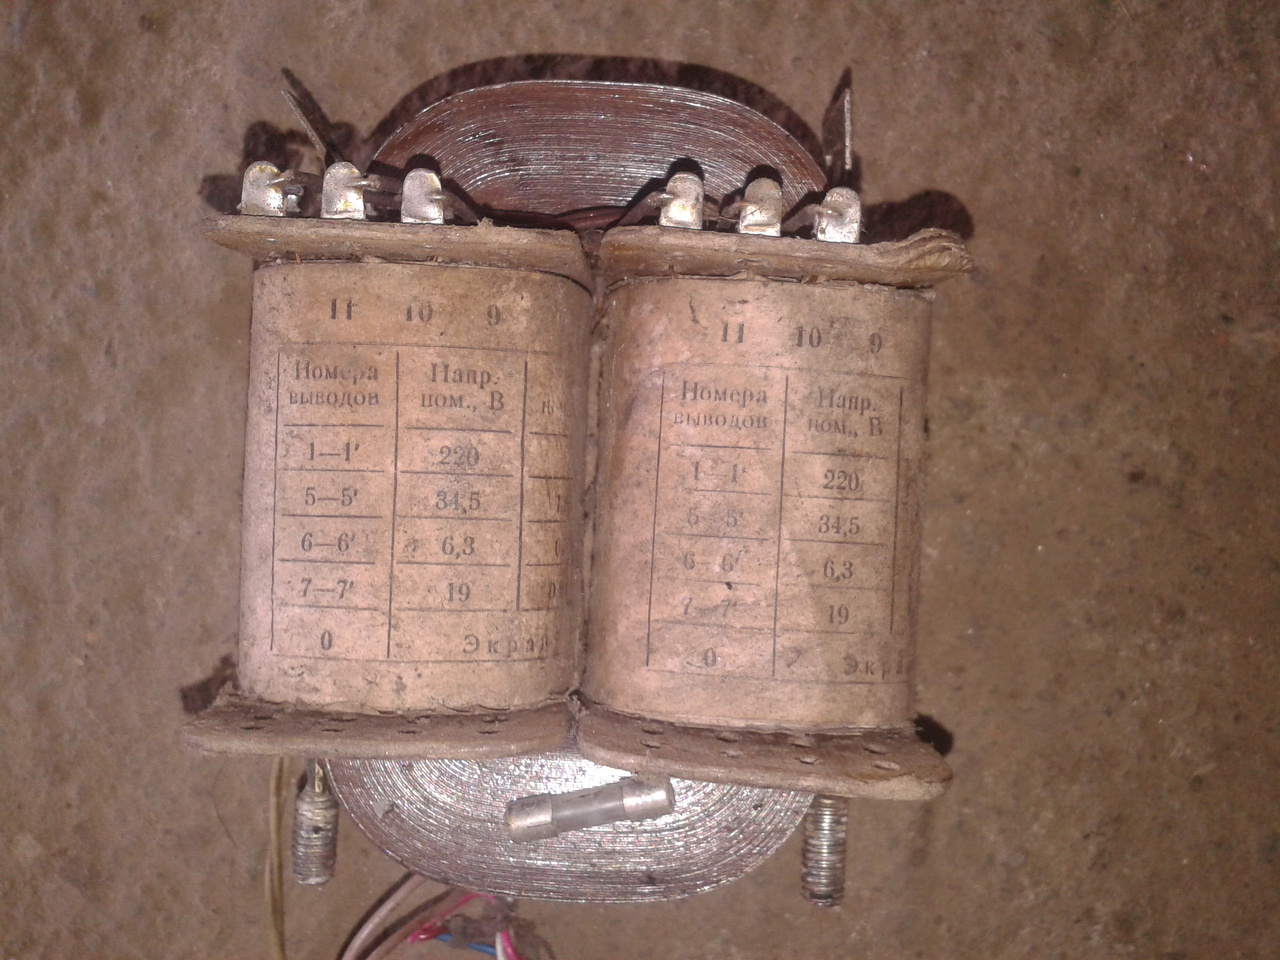 11 10 9
Номера выводов Напр. ном., В
1—1' 220
5—5' 34,5
6—6' 6,3
7—7' 19
0 Экра
11 10 9
Номера выводов Напр. ном., В
1—1' 220
5—5' 34,5
6—6' 6,3
7—7' 19
0 Экр